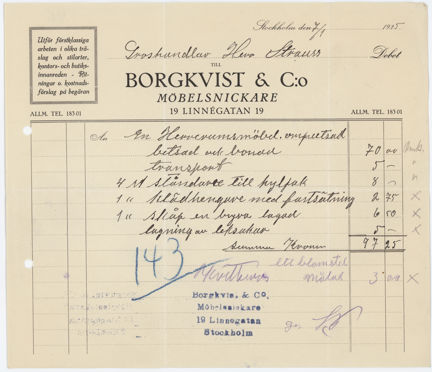 Utför förstklassiga
arbeten i olika trä-
slag och stilarter,
kontors- och butiks-
innanreden - Rit-
ningar o. kostnads-
förslag på begäran
Stockholm den 7/9 1925.
Grosshandlar Herr Strauss Debet
TILL
BORGKVIST & C:o
MÖBELSNICKARE
19 LINNÉGATAN 19
ALLM. TEL. 183 01
ALLM. TEL. 183 01
An En Herrerumsmöbel
betsad och bonad 70 00
transport 5 -
4 st till 8 -
1 " klädhängare med 2 75 ×
1 " skåp en lagad 6 50 ×
lagning av leksaker 5 - ×
Summa Kronor 97 25
143
Kvitteras
ett
målat 3 00 ×
Borgkvist & Co.
Möbelsnickare
19 Linnegatan
Stockholm